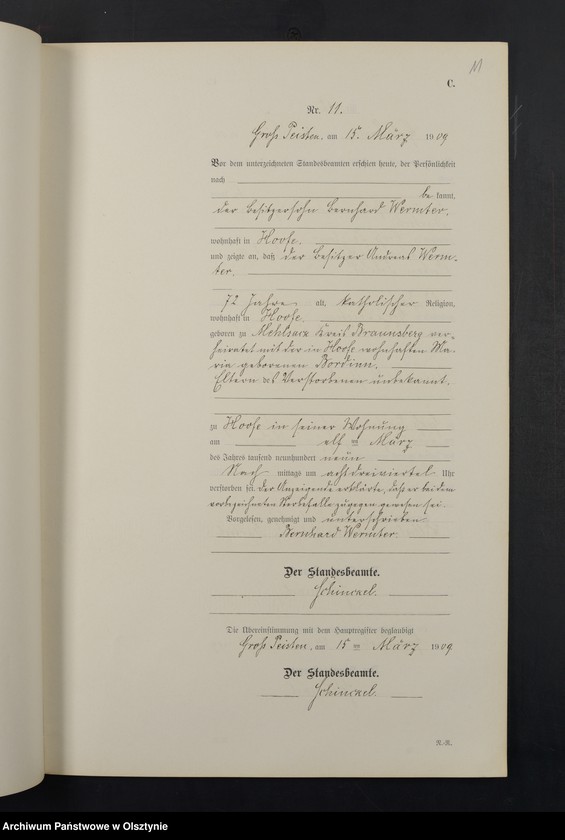 11
C.
Nr. 11.
Groß Peisten, am 15. März 1909
Vor dem unterzeichneten Standesbeamten erschien heute, der Persönlichkeit
nach
be kannt,
der Besitzersohn Bernhard Wermter,
wohnhaft in Hoofe,
und zeigte an, daß der Besitzer Andreas Werm-
ter,
72 Jahre alt, katholischer Religion,
wohnhaft in Hoofe,
geboren zu Mehlsack Kreis Braunsberg ver-
heiratet mit der in Hoofe wohnhaften Ma-
ria geborenen
Eltern des Verstorbenen unbekannt,
zu Hoofe in seiner Wohnung
am elften März
des Jahres tausend neunhundert neun
Nach mittags um acht dreiviertel Uhr
verstorben sei. Der Anzeigende erklärte, daß er bei dem
vorbezeichneten Sterbefalle zugegen gewesen sei.
Vorgelesen, genehmigt und unterschrieben
Bernhard Wermter.
Der Standesbeamte.
Schinckel.
Die Übereinstimmung mit dem Hauptregister beglaubigt
Groß Peisten, am 15 ten März 1909
Der Standesbeamte.
Schinckel.
R.-R.
Archiwum Państwowe w Olsztynie